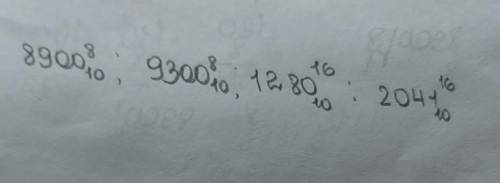 8900₁₀⁸; 9300₁₀⁸; 1280₁₀¹⁶; 2041₁₀¹⁶